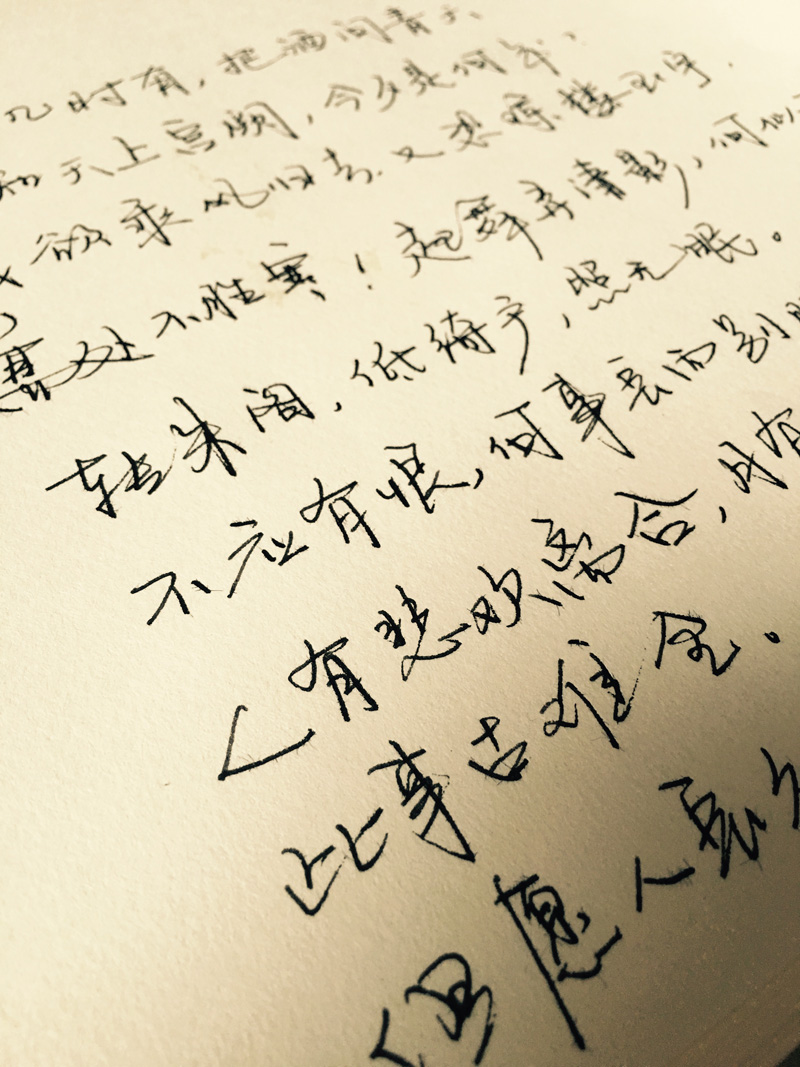 几时有，把酒问青天
知天上宫阙，今夕是何年，
欲乘风归去．又恐琼楼玉宇．
高处不胜寒！起舞弄清影，何似
转朱阁，低绮户，照无眠。
不应有恨，何事长向别时
人有悲欢离合，月有
此事古难全。
但愿人长久